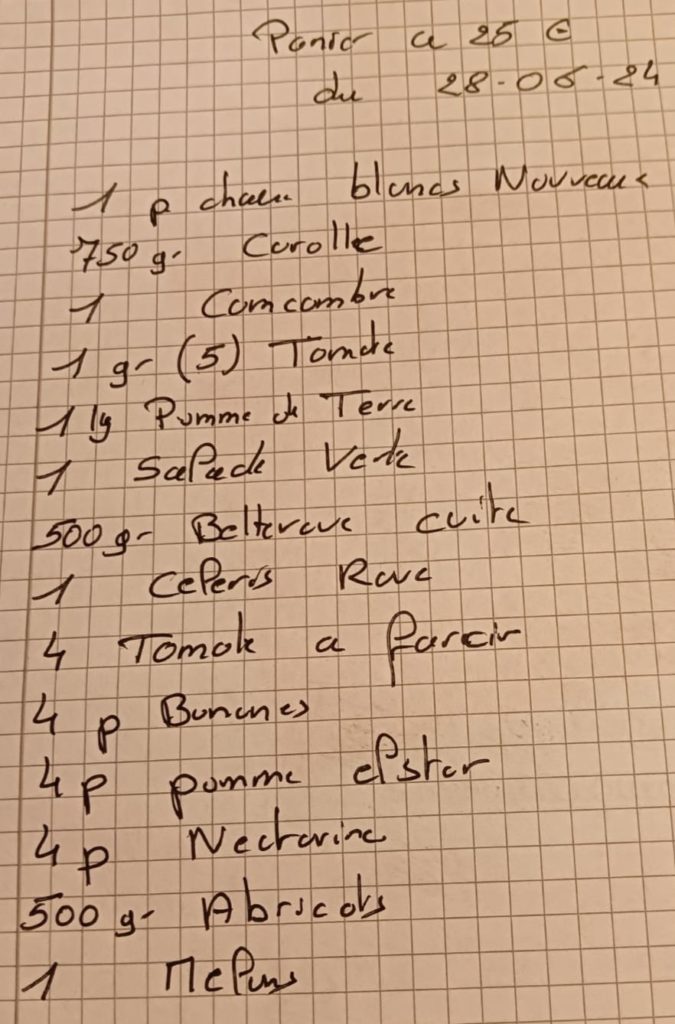 Panier a 25 €
du 28-06-24
1 p choux blancs Nouveaux
750 gr Carotte
1 Comcombre
1 gr (5) Tomate
1 kg Pomme de Terre
1 Salade Verte
500 gr Betterave cuite
1 Celeris Rave
4 Tomate a farcir
4 p Bananes
4 p pomme elstar
4 p Nectarine
500 gr Abricots
1 Melons